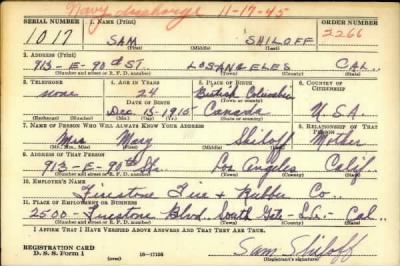 Navy discharge 11-17-45
SERIAL NUMBER 1. NAME (Print) ORDER NUMBER
1017 SAM SHILOFF 2266
(First) (Middle) (Last)
2. ADDRESS (Print)
913-E-90th ST. LOS ANGELES CAL.
(Number and street or R. F. D. number) (Town) (County) (State)
3. TELEPHONE 4. AGE IN YEARS 5. PLACE OF BIRTH 6. COUNTRY OF CITIZENSHIP
none 24 British Columbia
DATE OF BIRTH (Town or county)
Dec 15-1915 Canada U.S.A
(Exchange) (No.) (Mo.) (Day) (Yr.) (State or country)
7. NAME OF PERSON WHO WILL ALWAYS KNOW YOUR ADDRESS 8. RELATIONSHIP OF THAT PERSON
Mrs Mary Shiloff Mother
(Mr., Mrs., Miss) (First) (Middle) (Last)
9. ADDRESS OF THAT PERSON
913-E-90th St. Los Angeles Calif.
(Number and street or R. F. D. number) (Town) (County) (State)
10. EMPLOYER'S NAME
Firestone Tire & Rubber Co.
11. PLACE OF EMPLOYMENT OR BUSINESS
2500-Firestone Blvd. South Gate-L.A.-Cal.
(Number and street or R. F. D. number) (Town) (County) (State)
I AFFIRM THAT I HAVE VERIFIED ABOVE ANSWERS AND THAT THEY ARE TRUE.
REGISTRATION CARD
D. S. S. Form 1 16-17105 Sam Shiloff